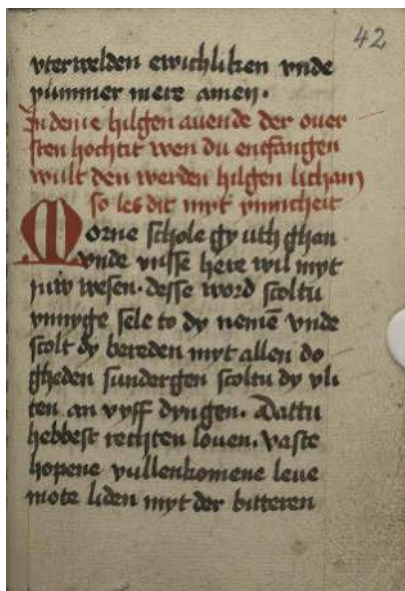 42
vterwelden ewichliken vnde
yummer mere amen.
In deme hilgen auende der ouer
sten hochtit wen du entfangen
wult den werden hilgen licham
so les dit myt ynnicheit
Morne schole gy uth ghan
vnde vnsse here wil myt
juw wesen. desse word scoltu
ynnyge sele to dy nemē vnde
scolt dy bereden myt allen do
gheden sundergen scoltu dy vli
ten an vyff dyngen. Dattu
hebbest rechten louen. vaste
hopene vullenkomene leue
mote liden myt der bitteren